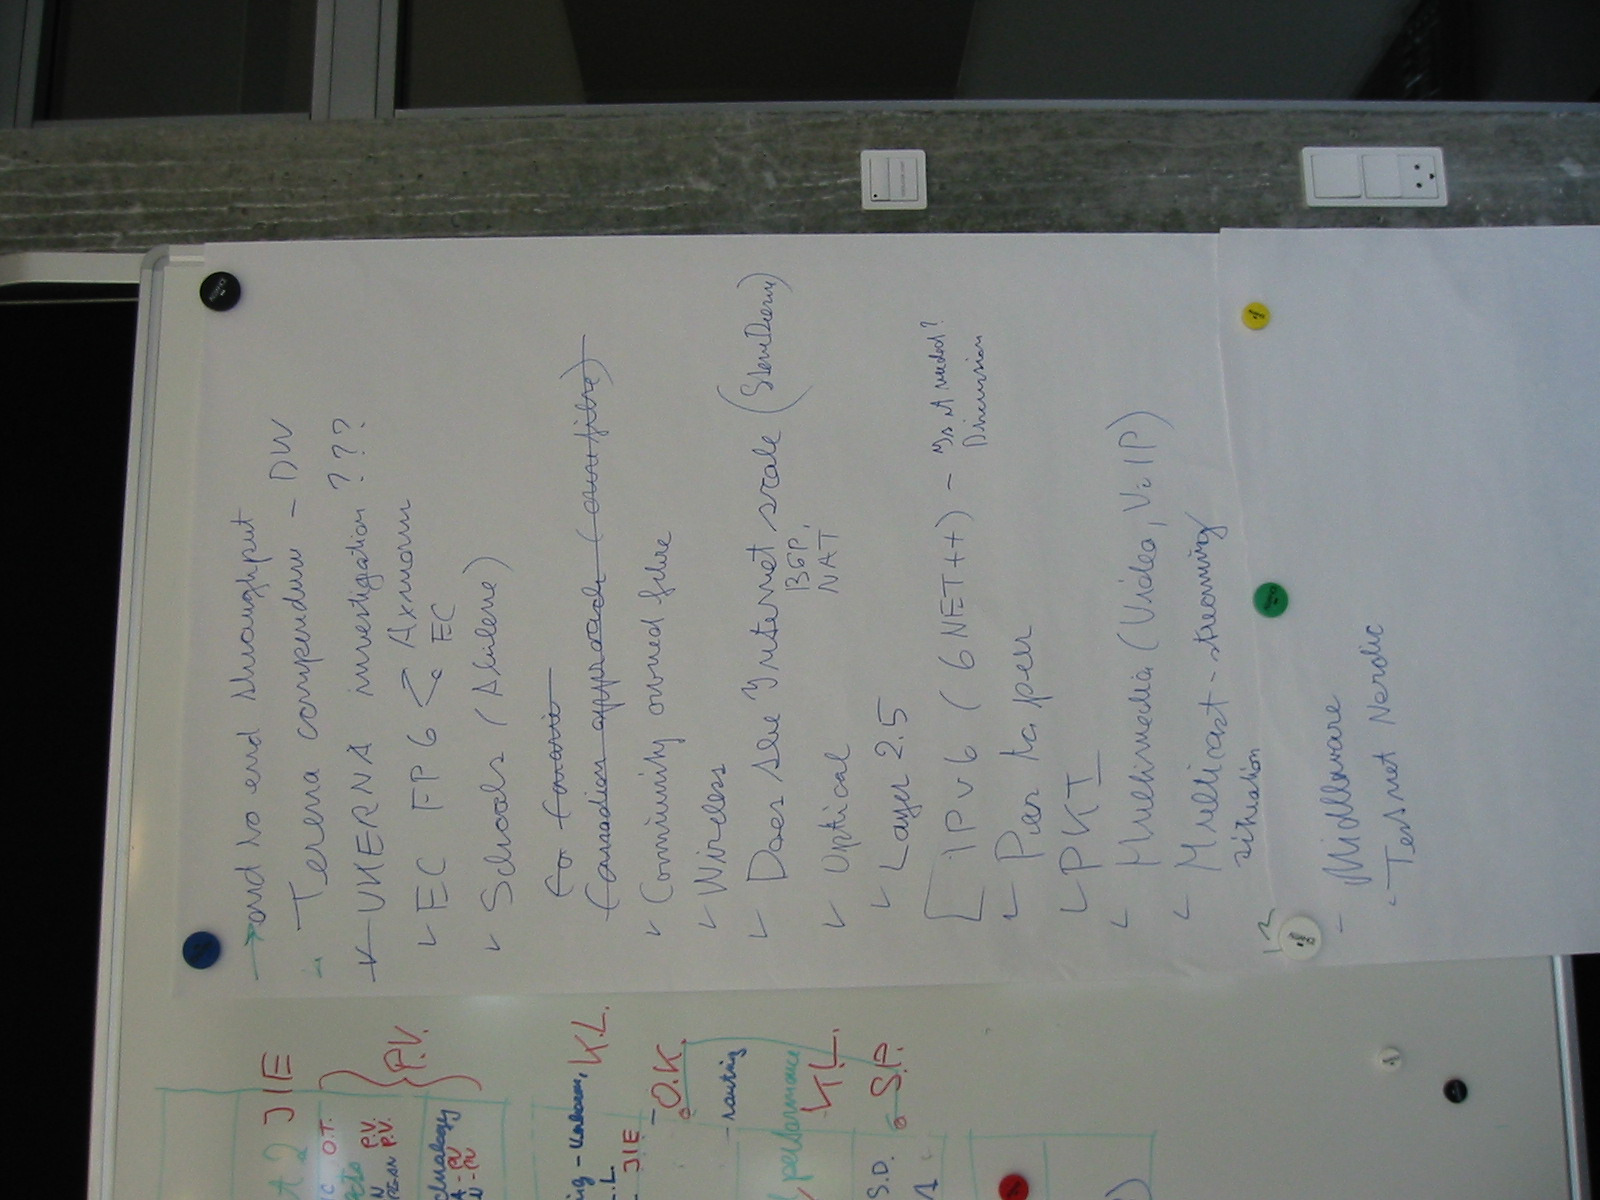 end to end throughput
Terena compendium - DW
UKERNA investigation ???
EC FP6 < Axmann
EC
Schools (Abilene)
Canadian approach
Community owned fibre
Wireless
Does the Internet scale (Steve Deering)
BGP,
NAT
Optical
Layer 2.5
IPv6 (6NET++) - Is it needed?
Discussion
Peer to peer
PKI
Multimedia (Video, VoIP)
Multicast - streaming
situation
- Middleware
- Testnet Nordic
JIE
P.V.
K.L.
O.K.
- routing
performance
K.L.
S.P.
O.T.
P.V.
P.V.
JIE
S.D.